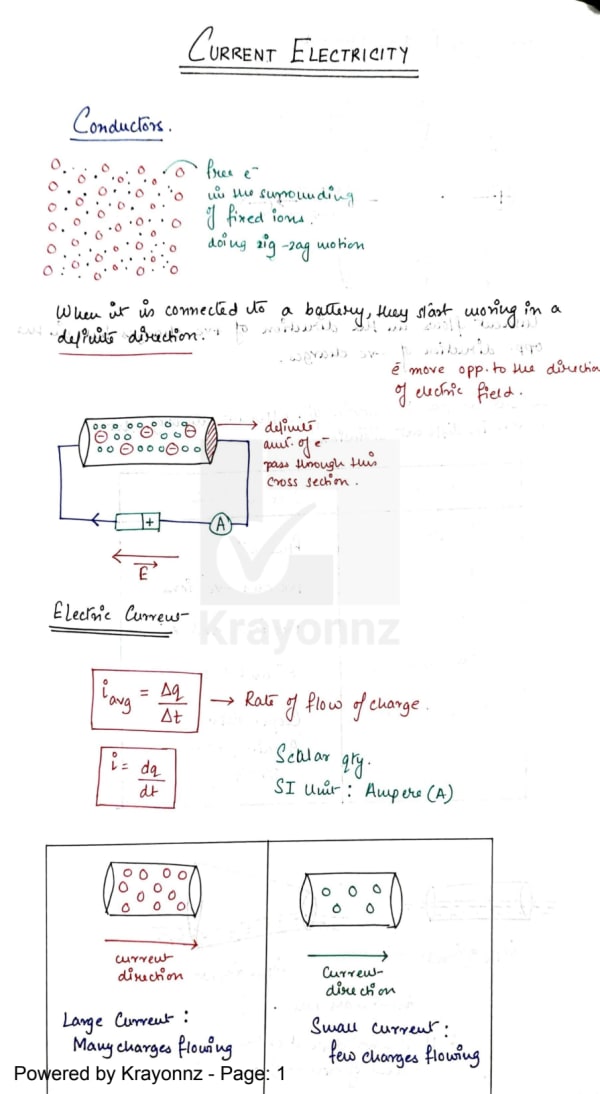 CURRENT ELECTRICITY
Conductors.
free e⁻
in the surrounding
of fixed ions.
doing zig-zag motion
When it is connected to a battery, they start moving in a
definite direction.
ē move opp. to the direction
of electric field.
definite
amt. of e⁻
pass through this
cross section.
+
A
E⃗
Krayonnz
Electric Current
i avg = Δq/Δt → Rate of flow of charge.
i = dq/dt
Scalar qty.
SI Unit : Ampere (A)
current
direction
Large Current :
Many charges flowing
Current
direction
Small current :
few charges flowing
Powered by Krayonnz - Page: 1